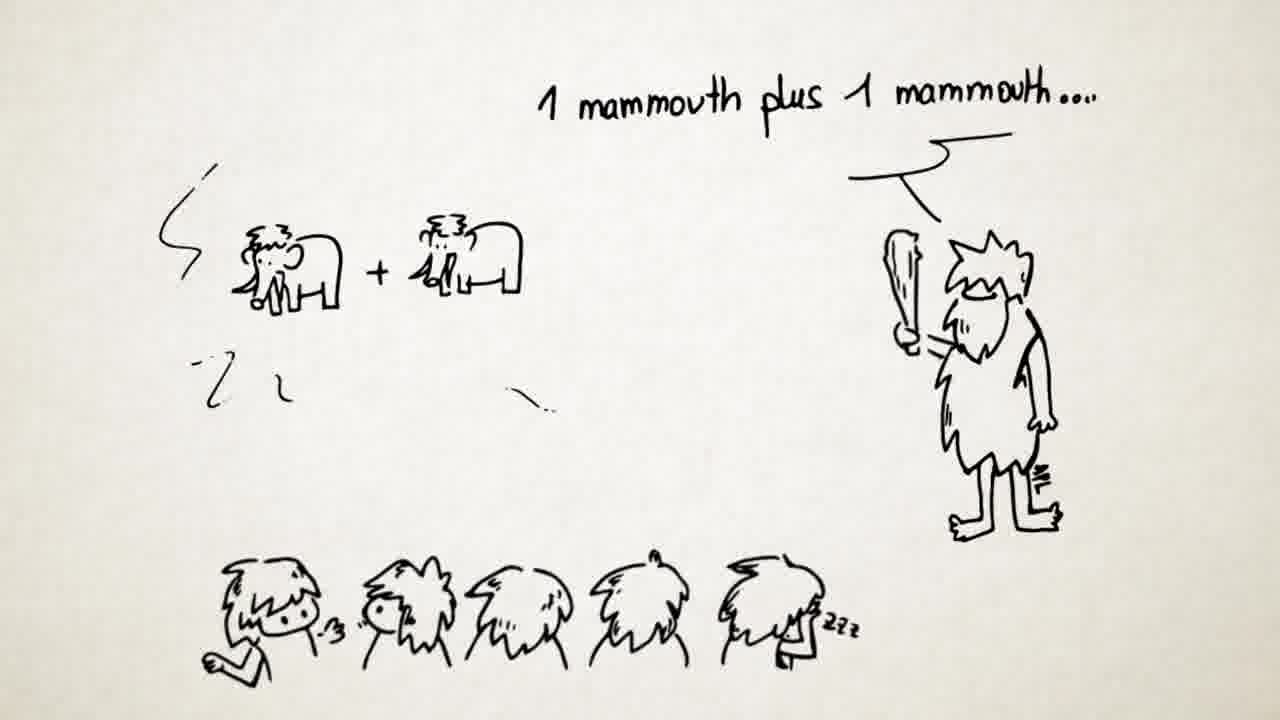 1 mammouth plus 1 mammouth....
+
zzz